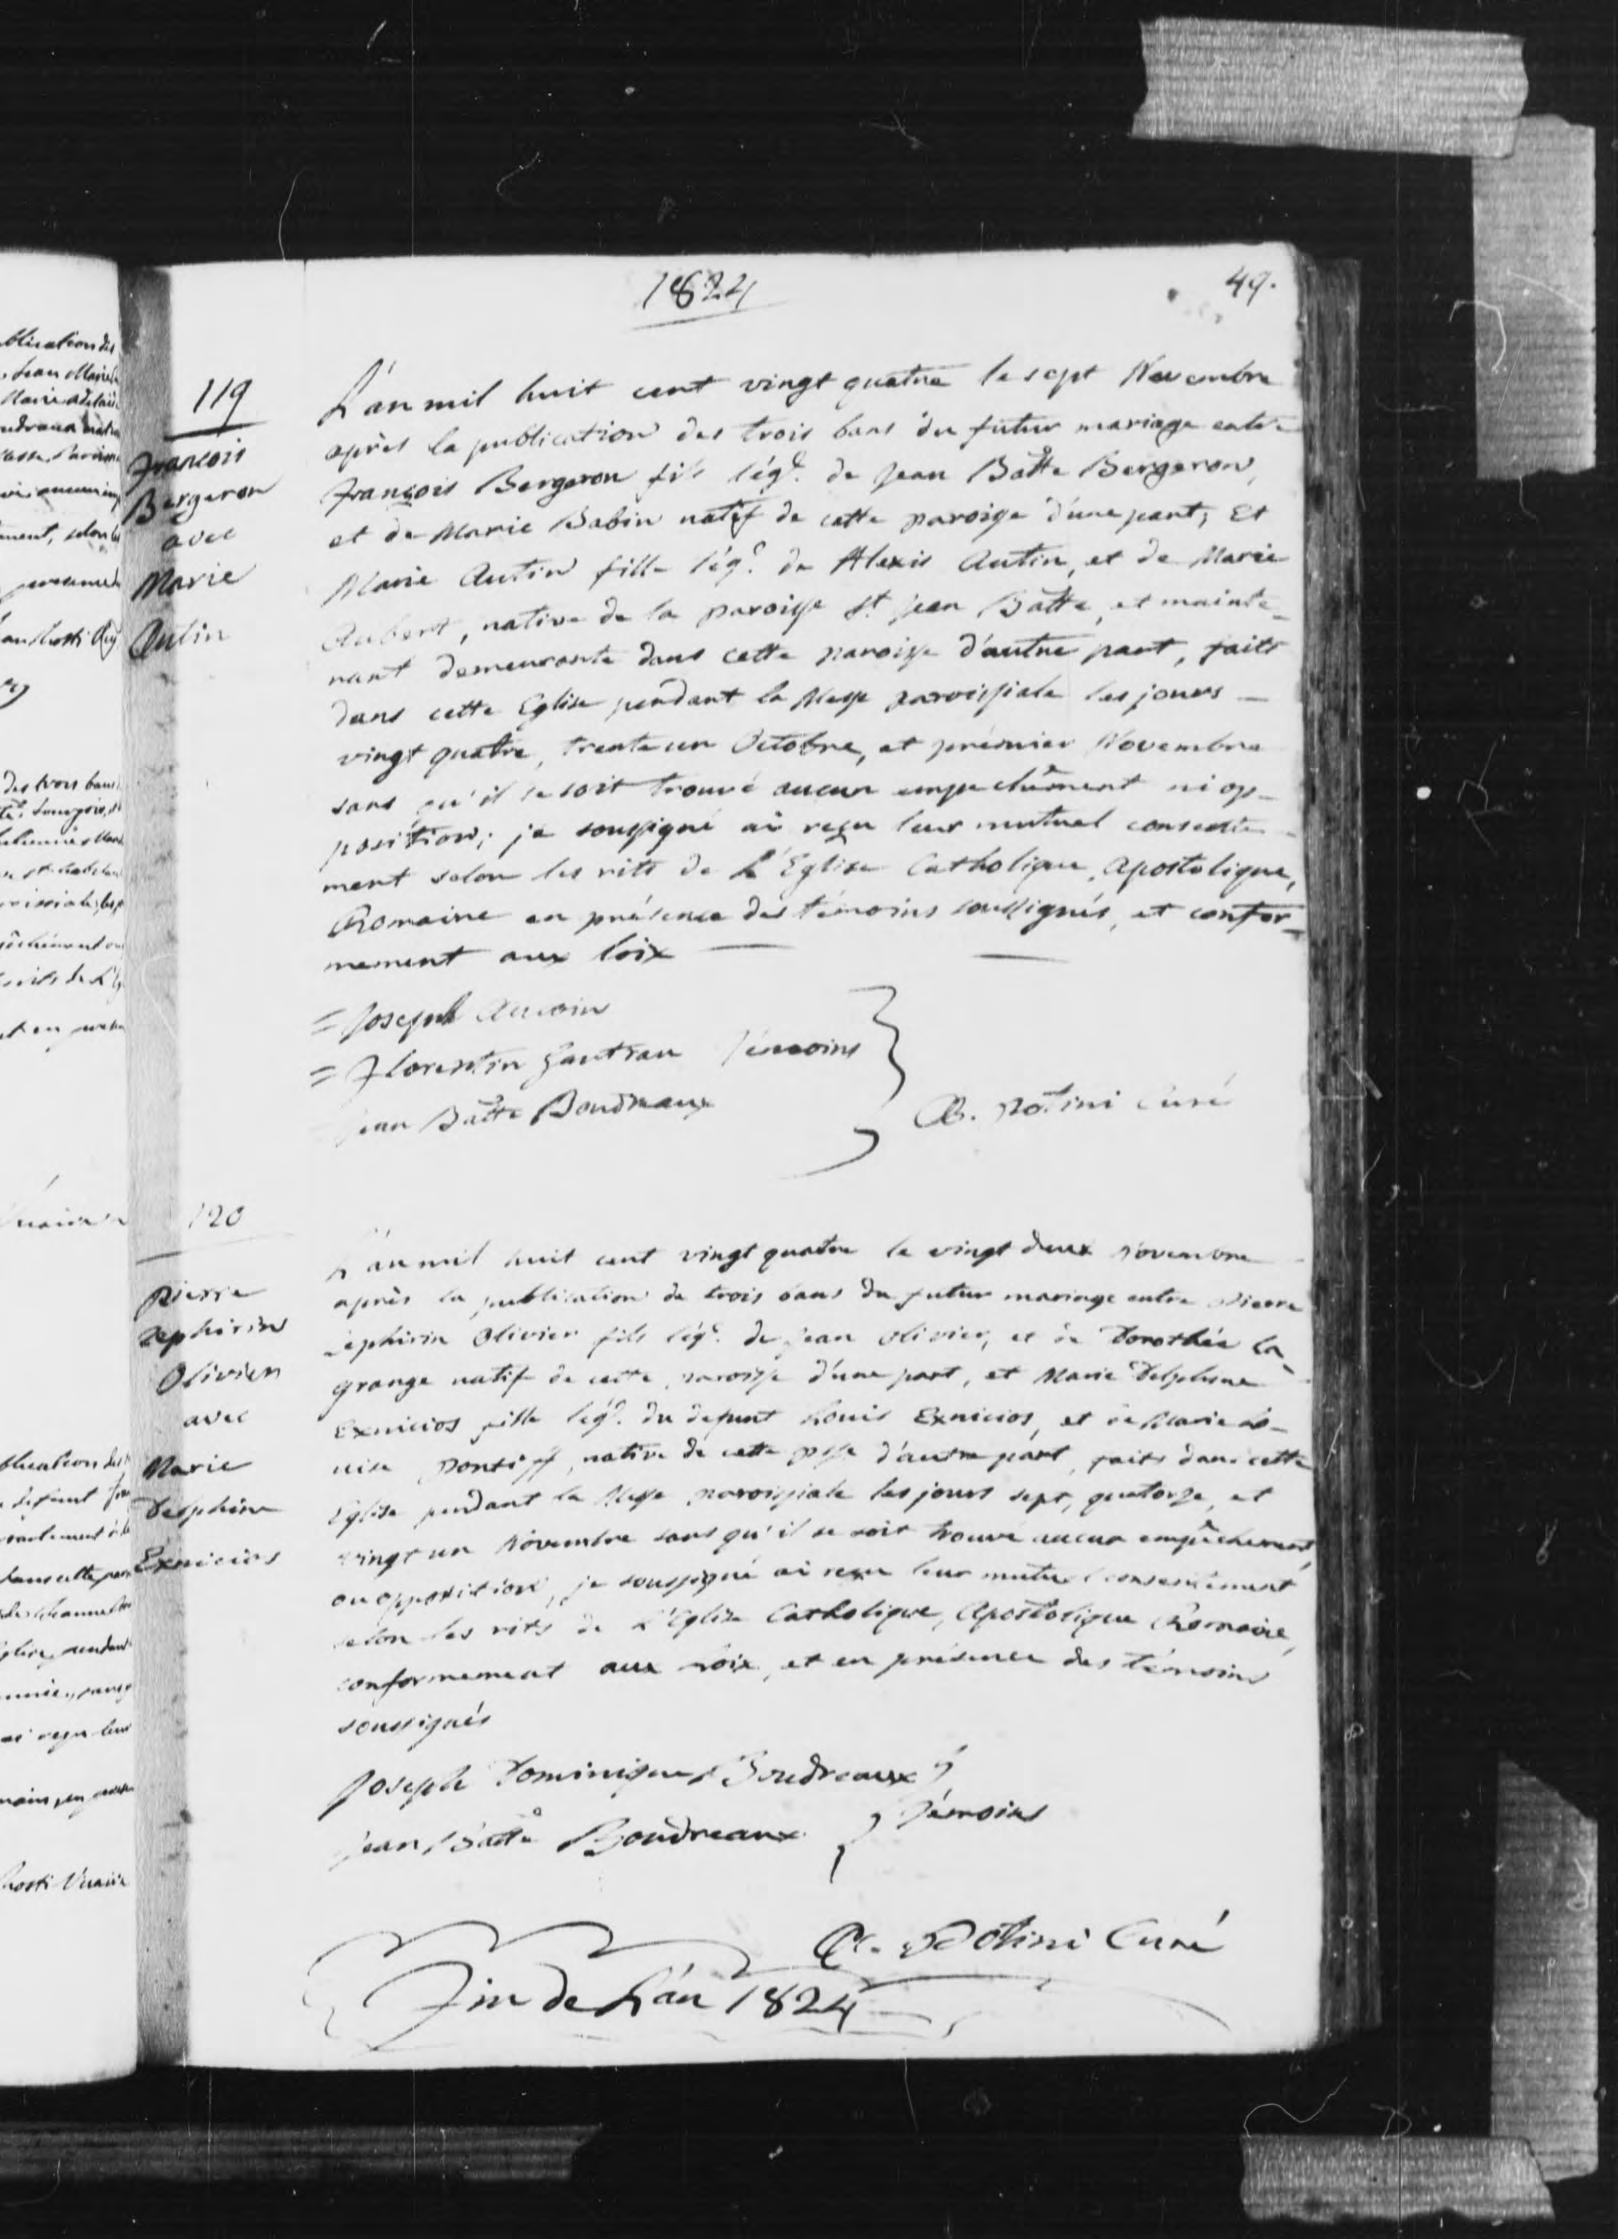 1824
49.
119
François
Bergeron
avec
Marie
Autin
L'an mil huit cent vingt quatre le sept Novembre
après la publication des trois bans du futur mariage entre
François Bergeron fils lég.e de Jean Batte Bergeron,
et de Marie Babin natif de cette paroisse d'une part, Et
Marie Autin fille lég.e de Alexis Autin, et de Marie
Aubert, native de la paroisse St. Jean Batte, et mainte-
nant demeurante dans cette paroisse d'autre part, faits
dans cette Eglise pendant la Messe paroissiale les jours —
vingt quatre, trente un Octobre, et prémier Novembre
sans qu'il se soit trouvé aucun empechêment ni op-
position; je soussigné ai reçu leur mutuel consente-
ment selon les rits de L'Eglise Catholique, Apostolique,
Romaine en présence des témoins soussignés, et confor-
mement aux loix —
= Joseph Aucoin
= Florentin Gautrau témoins
= Jean Batte Boudreaux
A. Potini Curé
120
Pierre
Zephirin
Olivier
avec
Marie
Delphine
Exnicios
L'an mil huit cent vingt quatre le vingt deux Novembre
après la publication de trois bans du futur mariage entre Pierre
Zephirin Olivier fils lég.e de Jean Olivier, et de Dorothée La-
grange natif de cette paroisse d'une part, et Marie Delphine
Exnicios fille lég.e du defunt Louis Exnicios, et de Marie Lo-
uise Pontiff, native de cette psse d'autre part, faits dans cette
Eglise pendant la Messe paroissiale les jours sept, quatorze, et
vingt un Novembre sans qu'il se soit trouvé aucun empêchement,
ou opposition, je soussigné ai reçu leur mutuel consentement
selon les rits de L'Eglise Catholique, Apostolique Romaine,
conformement aux loix, et en présence des témoins
soussignés
Joseph Dominique Boudreaux
Jean Batte Boudreaux
témoins
A. Potini Curé
Fin de L'an 1824